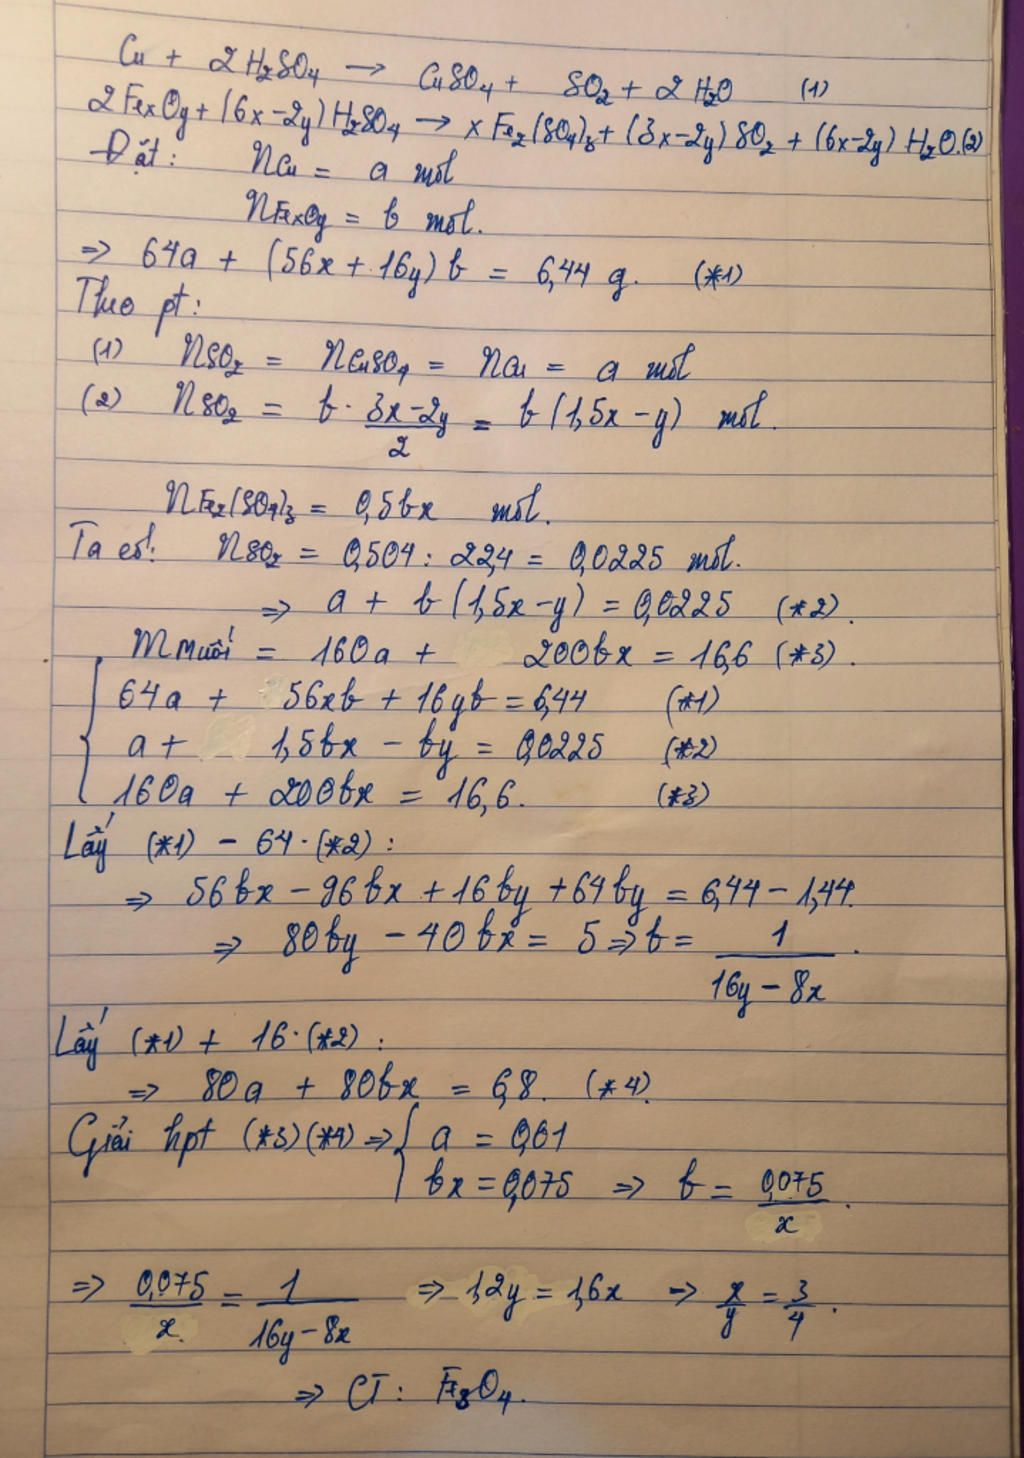 Cu + 2H₂SO₄ → CuSO₄ + SO₂ + 2H₂O (1)
2FexOy + (6x-2y)H₂SO₄ → xFe₂(SO₄)₃ + (3x-2y)SO₂ + (6x-2y)H₂O.(2)
Đặt: nCu = a mol
nFexOy = b mol.
=> 64a + (56x + 16y)b = 6,44 g. (*1)
Theo pt:
(1) nSO₂ = nCuSO₄ = nCu = a mol
(2) nSO₂ = b · (3x-2y)/2 = b(1,5x-y) mol.
nFe₂(SO₄)₃ = 0,5bx mol.
Ta có: nSO₂ = 0,504 : 22,4 = 0,0225 mol.
=> a + b(1,5x-y) = 0,0225 (*2).
m muối = 160a + 200bx = 16,6 (*3).
64a + 56xb + 16yb = 6,44 (*1)
a + 1,5bx - by = 0,0225 (*2)
160a + 200bx = 16,6. (*3)
Lấy (*1) - 64·(*2):
=> 56bx - 96bx + 16by + 64by = 6,44 - 1,44.
=> 80by - 40bx = 5 => b = 1/(16y - 8x).
Lấy (*1) + 16·(*2):
=> 80a + 80bx = 6,8. (*4).
Giải hpt (*3)(*4) => { a = 0,01
bx = 0,075 => b = 0,075/x.
=> 0,075/x = 1/(16y-8x) => 1,2y = 1,6x => x/y = 3/4.
=> CT: Fe₃O₄.